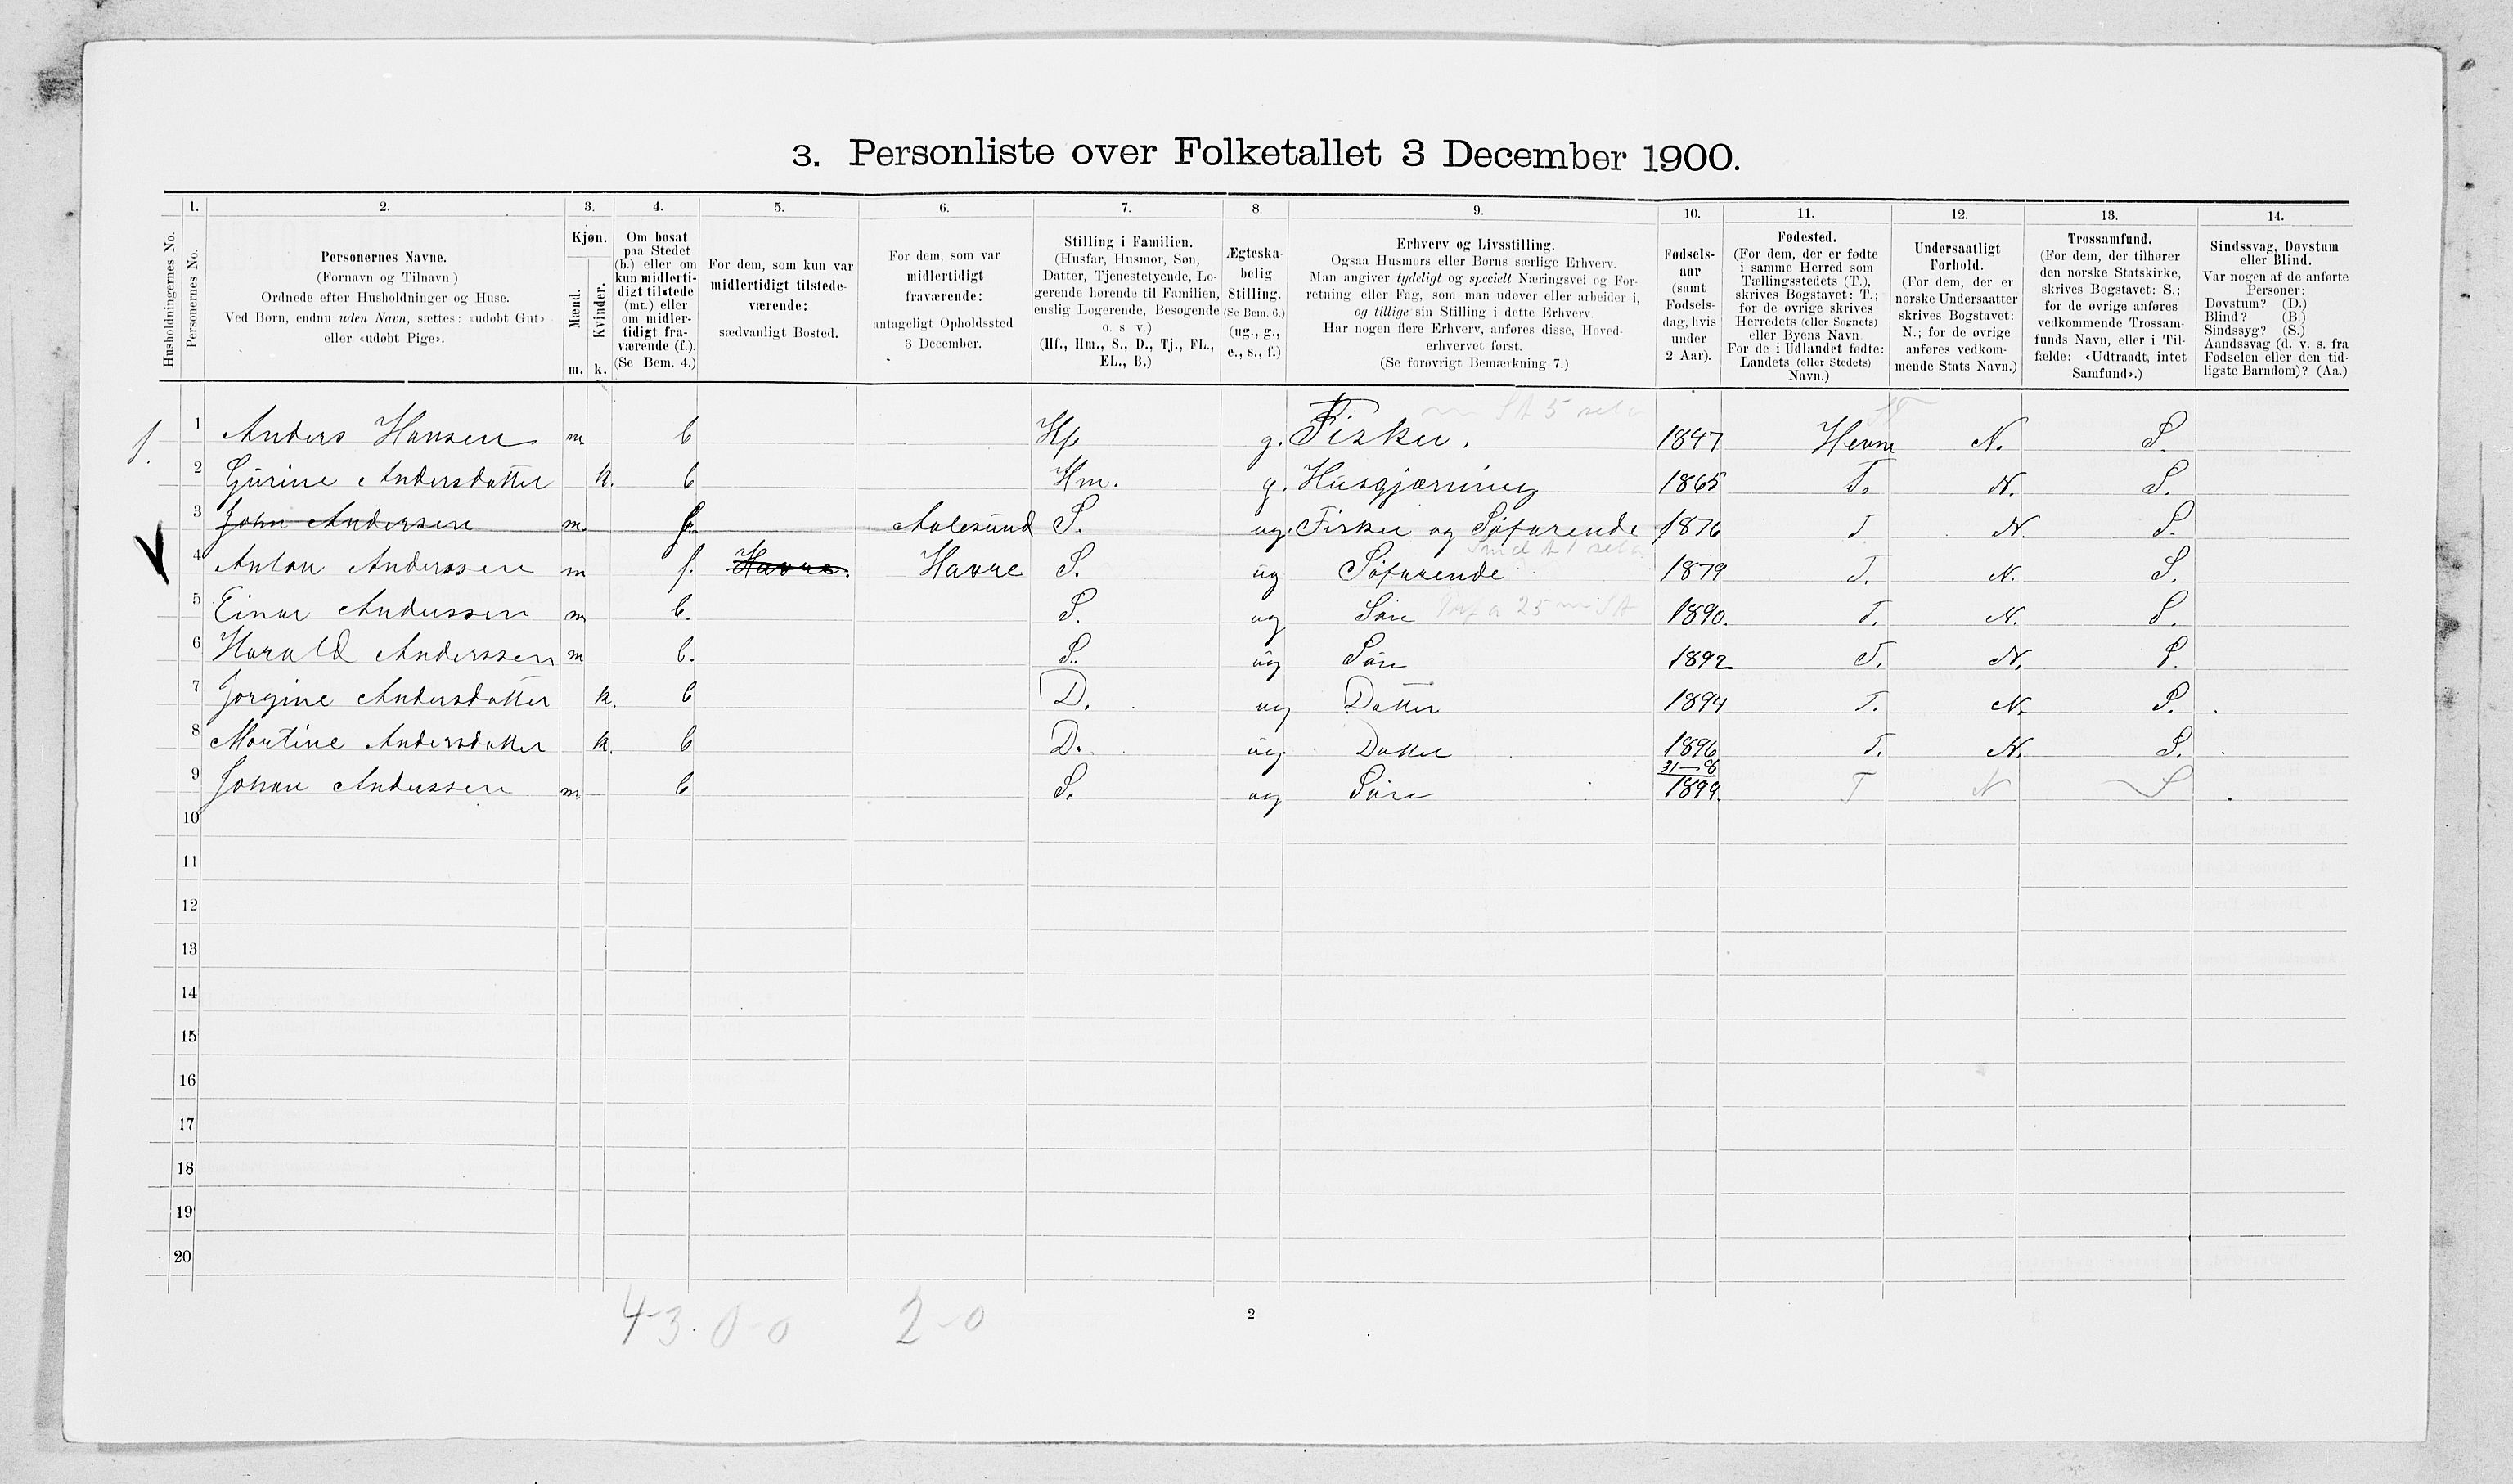 3. Personliste over Folketallet 3 December 1900.
Husholdningernes No.
1. 2. 3. 4. 5. 6. 7. 8. 9. 10. 11. 12. 13. 14.
Personernes No.
Personernes Navne.
(Fornavn og Tilnavn)
Ordnede efter Husholdninger og Huse.
Ved Børn, endnu uden Navn, sættes: «udøbt Gut»
eller «udøbt Pige».
Kjøn.
Mænd.
Kvinder.
m. k.
Om bosat
paa Stedet
(b.) eller om
kun midlerti-
digt tilstede
(mt.) eller
om midler-
tidigt fra-
værende (f.).
(Se Bem. 4.)
For dem, som kun var
midlertidigt tilstede-
værende:
sædvanligt Bosted.
For dem, som var
midlertidigt
fraværende:
antageligt Opholdssted
3 December.
Stilling i Familien.
(Husfar, Husmor, Søn,
Datter, Tjenestetyende, Lo-
gerende hørende til Familien,
enslig Logerende, Besøgende
o. s v.)
(Hf., Hm., S., D., Tj., FL.,
EL., B.)
Ægteska-
belig
Stilling.
(Se Bem. 6.)
(ug., g.,
e., s., f.)
Erhverv og Livsstilling.
Ogsaa Husmors eller Børns særlige Erhverv.
Man angiver tydeligt og specielt Næringsvei og For-
retning eller Fag, som man udøver eller arbeider i,
og tillige sin Stilling i dette Erhverv.
Har nogen flere Erhverv, anføres disse, Hoved-
erhvervet først.
(Se forøvrigt Bemærkning 7.)
Fødsels-
aar
(samt
Fødsels-
dag, hvis
under
2 Aar).
Fødested.
(For dem, der er fødte
i samme Herred som
Tællingsstedets (T.),
skrives Bogstavet: T.;
for de øvrige skrives
Herredets (eller Sognets)
eller Byens Navn
For de i Udlandet fødte:
Landets (eller Stedets)
Navn.)
Undersaatligt
Forhold.
(For dem, der er
norske Undersaatter
skrives Bogstavet:
N.; for de øvrige
anføres vedkom-
mende Stats Navn.)
Trossamfund.
(For dem, der tilhører
den norske Statskirke,
skrives Bogstavet: S.;
for de øvrige anføres
vedkommende Trossam-
funds Navn, eller i Til-
fælde: «Udtraadt, intet
Samfund».)
Sindssvag, Døvstum
eller Blind.
Var nogen af de anførte
Personer:
Døvstum? (D.)
Blind? (B.)
Sindssyg? (S.)
Aandssvag (d. v. s. fra
Fødselen eller den tid-
ligste Barndom)? (Aa.)
1. 1 Anders Hansen m b Hf g. Fisker. 1847 Hevne N. S.
2 Gurine Andersdatter k. b Hm. g. Husgjærning 1865 T. N. S.
3 John Andersen m. f. Aalesund S. ug. Fisker og Søfarende 1876 T. N. S.
4 Anton Anderssen m f. Havre. Havre S. ug Søfarende 1879 T. N. S.
5 Einar Anderssen m b. S. ug Søn 1890. T. N. S.
6 Harald Anderssen m b. S. ug Søn 1892 T. N. S.
7 Jorgine Andersdatter k. b D. ug Datter 1894 T. N. S.
8 Martine Andersdatter k. b D. ug. Datter 1896 T. N. S.
31-8
9 Johan Anderssen m. b S. ug Søn 1899. T N S
10
11
12
13
14
15
16
17
18
19
20
4-3. 0-0 2-0
2